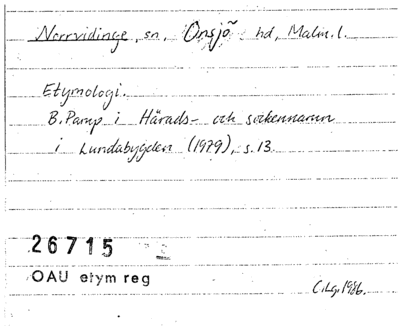 Norrvidinge, sn, Onsjö hd, Malm. l.
Etymologi.
B. Pamp i Härads- och sockennamn
i Lundabygden (1979), s. 13
26715
OAU etym reg
C.Lg. 1986.